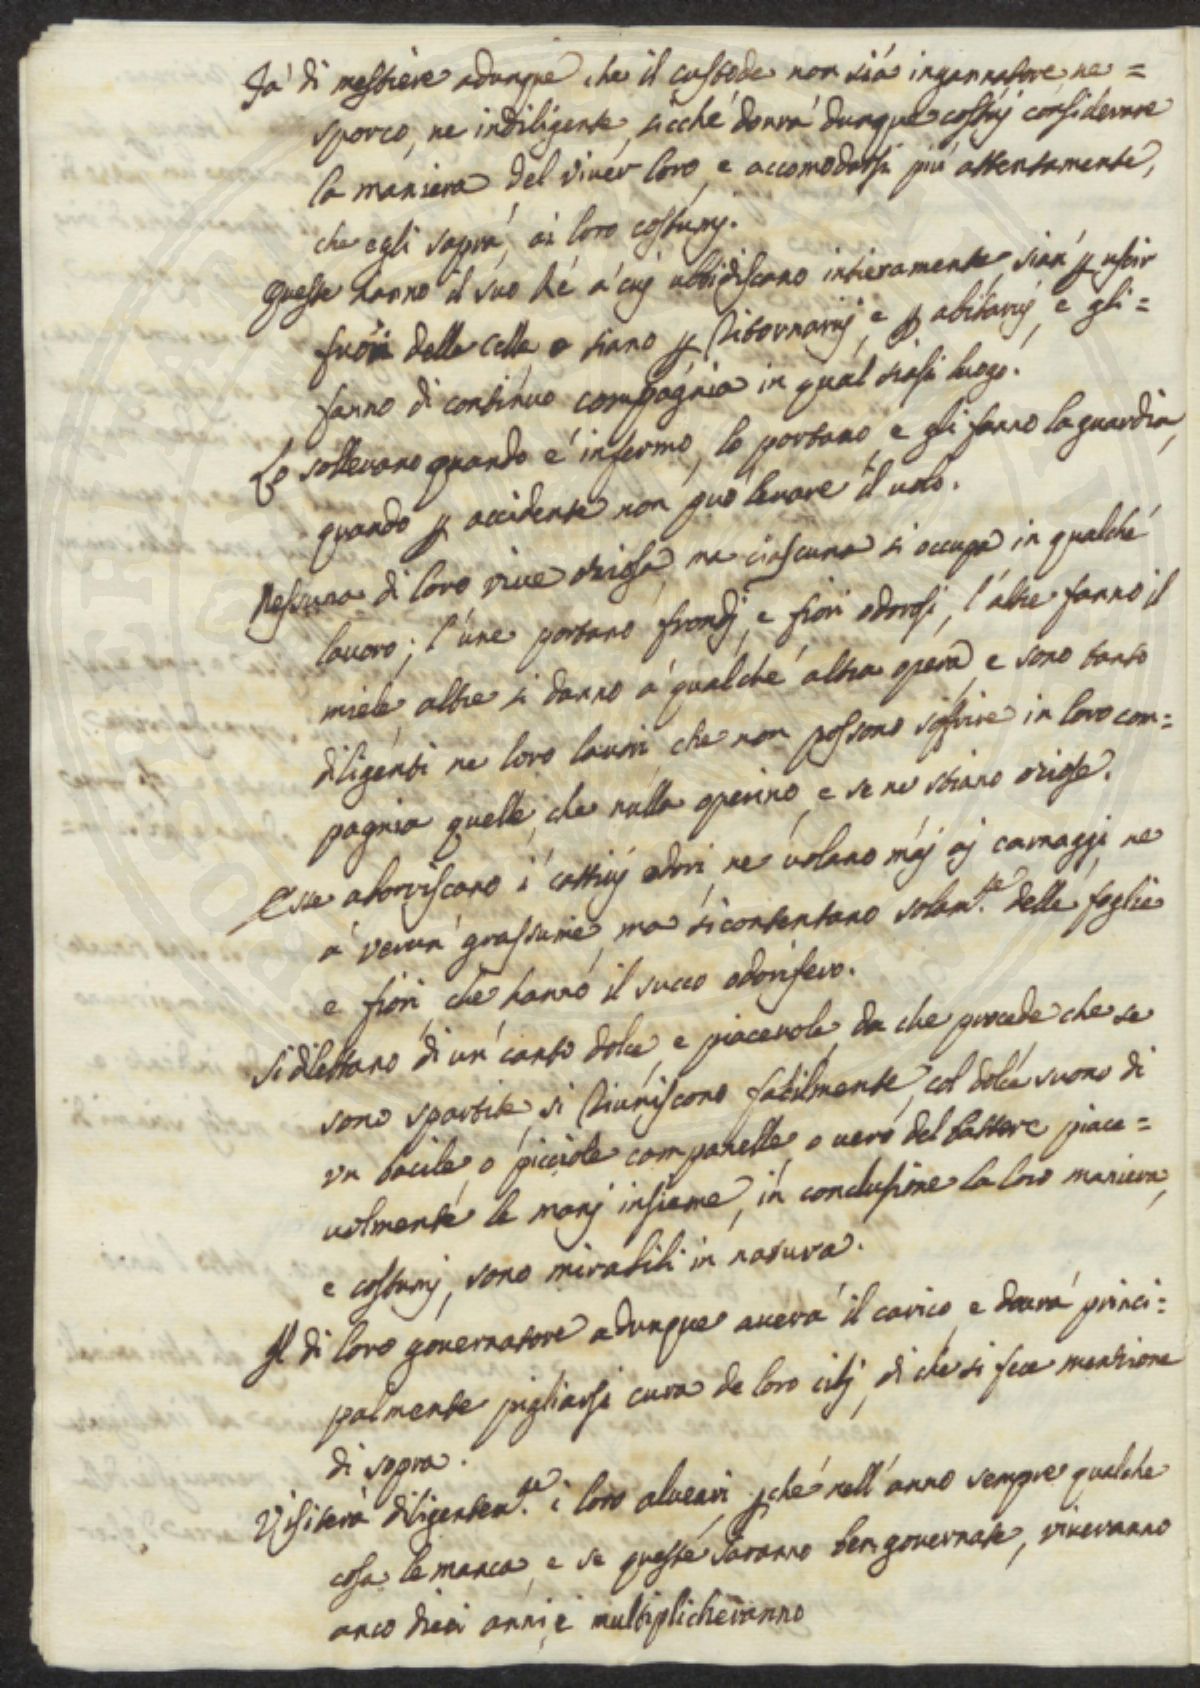 Fà di mestiere adunque che il custode non sià ingannatore ne =
sporco, ne indiligente, sicché dovrà dunque costuj considerare
la maniera del viver loro, e accomodarsi più attentamente,
che egli saprà, ai loro costumj.
Queste hanno il suo Ré à cuj ubbidiscono intieramente, sian ꝑ uscir
fuori delle celle o siano ꝑ Ritornarvj, e ꝑ abitarvj, e gli =
fanno di continuo compagnia in qual siasi luogo.
Lo sollevano quando e' infermo, lo portano, e gli fanno la guardia,
quando ꝑ accidente non può levare il volo.
Nessuna di loro vive oziosa, ma ciascuna si occupa in qualché
lavoro; l'une portano frondj, e fiori odorosi, l'altre fanno il
miele altre si danno à qualché altra opera, e sono tanto
diligenti ne loro lavori che non possono soffrire in loro com=
pagnia quelle, che nulla operino, e se ne stiano oziose.
Esse aborriscono i cattivj odori, ne volano maj aj carnaggi, ne
à verun grassume, ma si contentano solam.te delle foglie
e fiori che hanno il succo odorifero.
Si dilettano di un canto dolce, e piacevole, da che procede che se
sono spartite, si Riuniscono facilmente, col dolce suono di
un bacile, o picciole campanelle, o vero del battere piace=
volmente le manj insieme, in conclusione la loro maniera,
e costumj, sono mirabili in natura.
Il di loro governatore adunque averà il carico, e dovrà princi=
palmente pigliarsi cura de loro cibj, di che si fece menzione
di sopra.
Visiterà diligentem.te i loro alveari, ꝑché nell'anno sempre qualche
cosa le manca, e se queste saranno ben governate, viveranno
anco dieci anni, e multiplicheranno